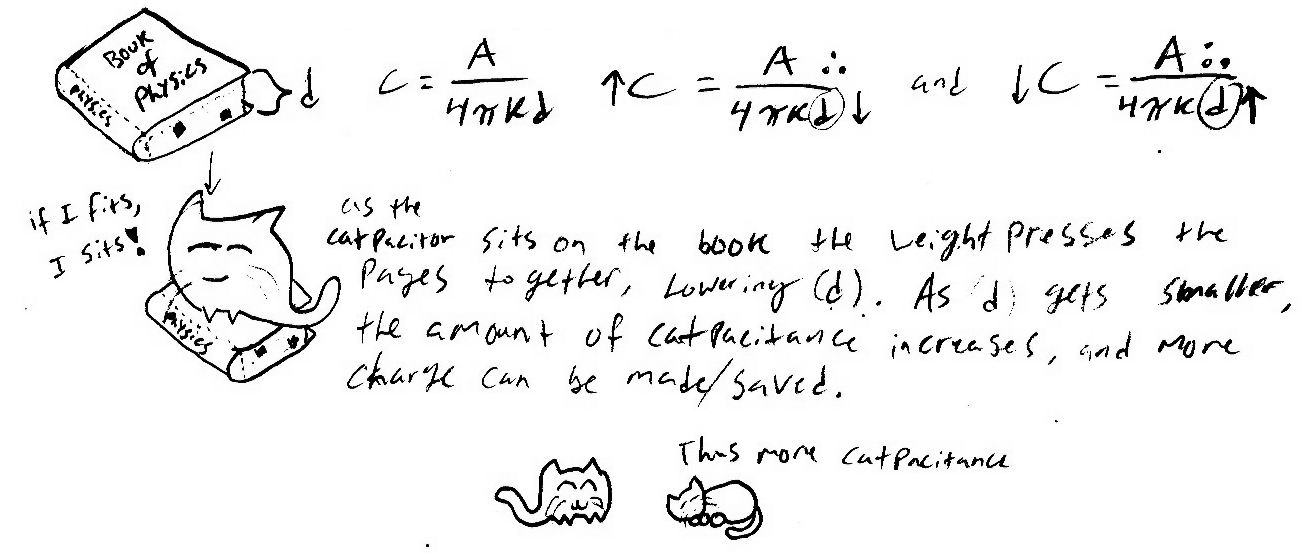 Book
of
Physics
Physics
d
C = A / 4πKd
↑C = A / 4πKd↓ ∴ and ↓C = A / 4πKd↑ ∴
if I fits,
I sits!
Physics
as the
catpacitor sits on the book the weight presses the
pages together, Lowering (d). As (d) gets smaller,
the amount of catpacitance increases, and more
charge can be made/saved.
Thus more catpacitance